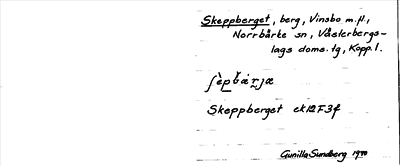 Skeppberget, berg, Vinsbo m.fl.,
Norrbärke sn, Västerbergs-
lags doms. tg, Kopp. l.
Skeppberget ek12F3f
Gunilla Sundberg 1980